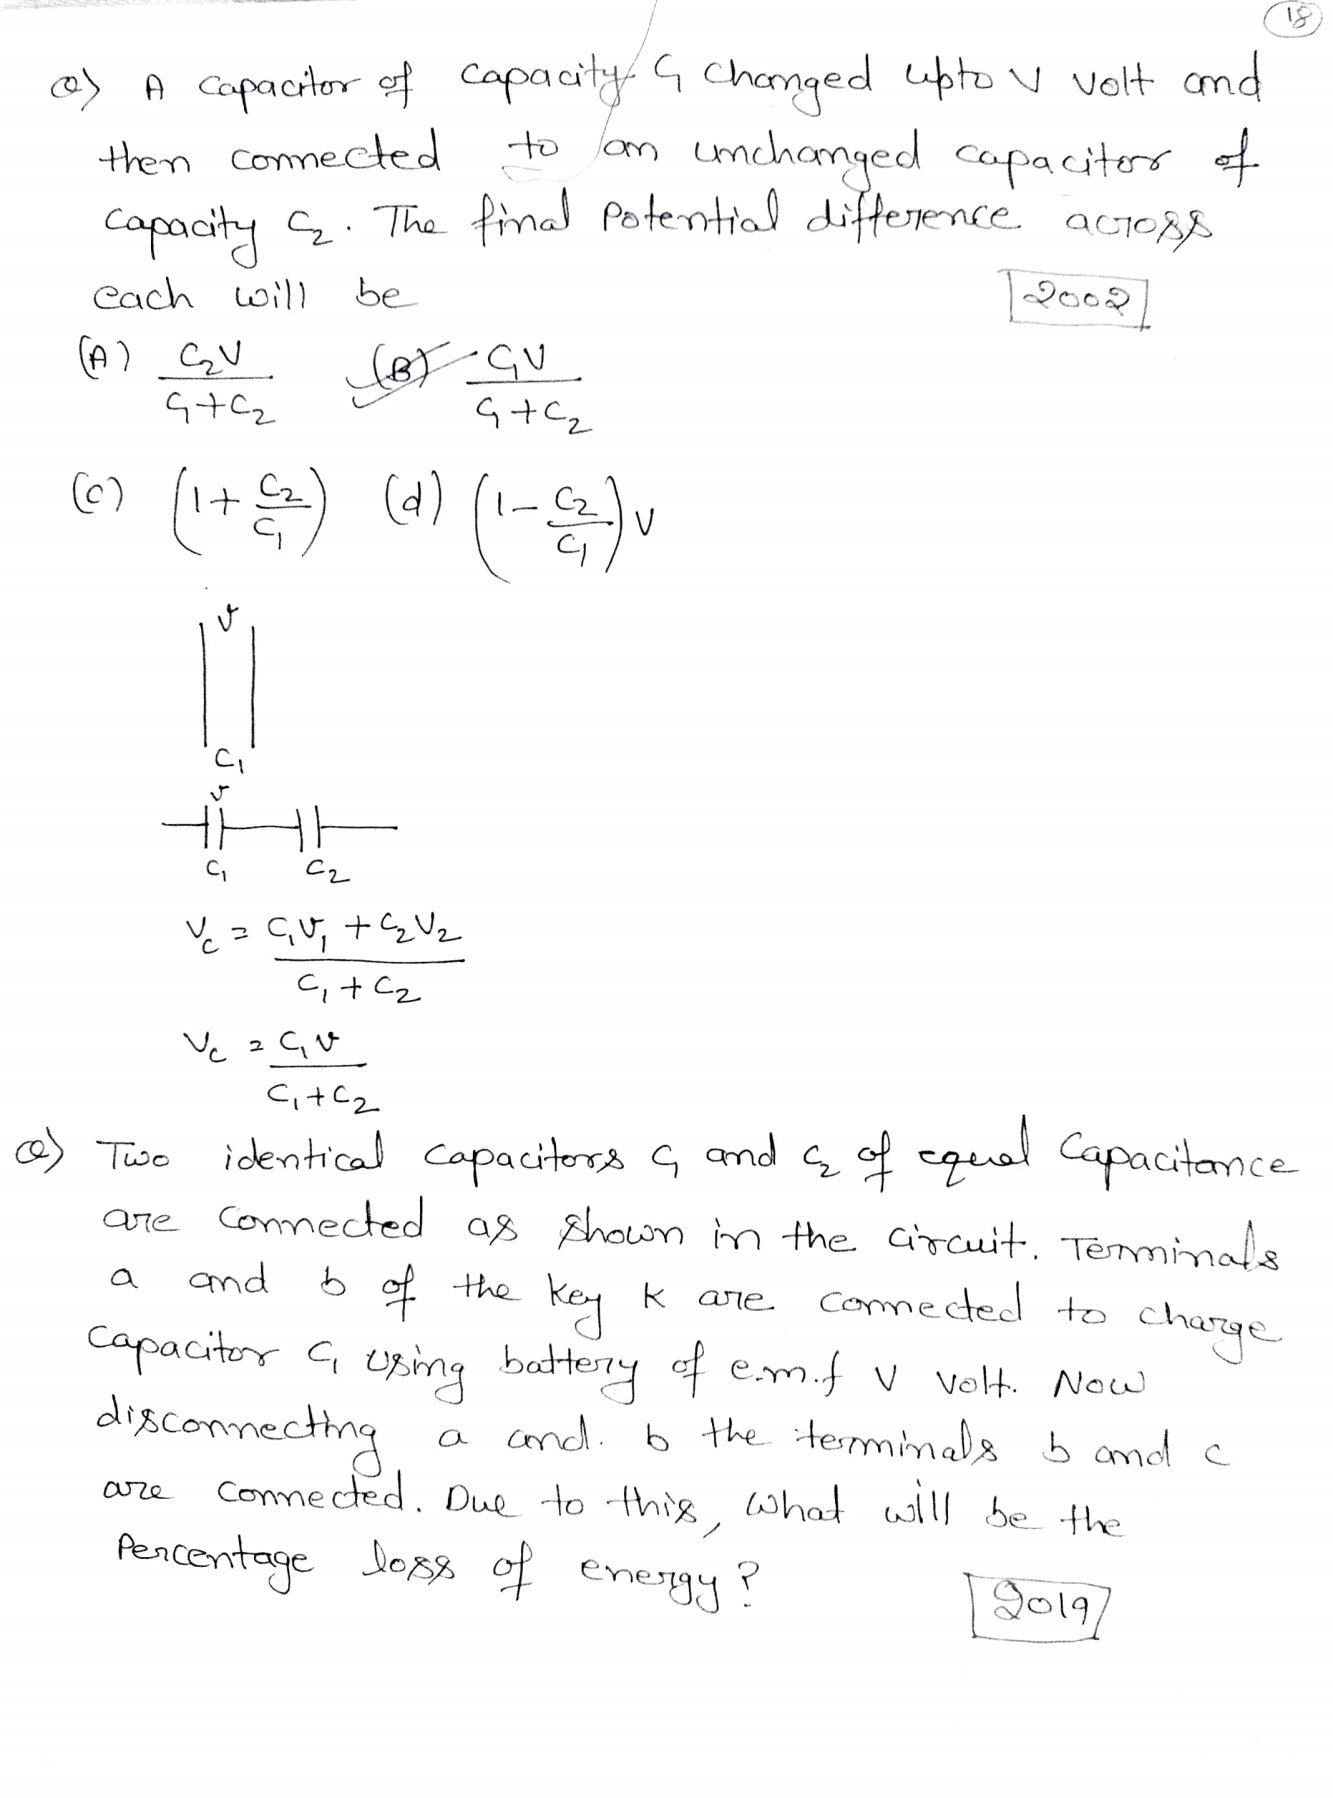 18
Q) A capacitor of capacity C1 changed upto V volt and
then connected to an unchanged capacitor of
capacity C2. The final Potential difference across
each will be
2002
(A) C2V / C1+C2 (B) C1V / C1+C2
(C) (1 + C2/C1) (d) (1 - C2/C1) V
V
C1
V
C1 C2
Vc = C1V1 + C2V2 / C1 + C2
Vc = C1V / C1+C2
Q) Two identical capacitors C1 and C2 of equal Capacitance
are connected as shown in the circuit. Terminals
a and b of the key K are connected to charge
capacitor C1 using battery of e.m.f V volt. Now
disconnecting a and. b the terminals b and c
are connected. Due to this, what will be the
Percentage loss of energy?
2019